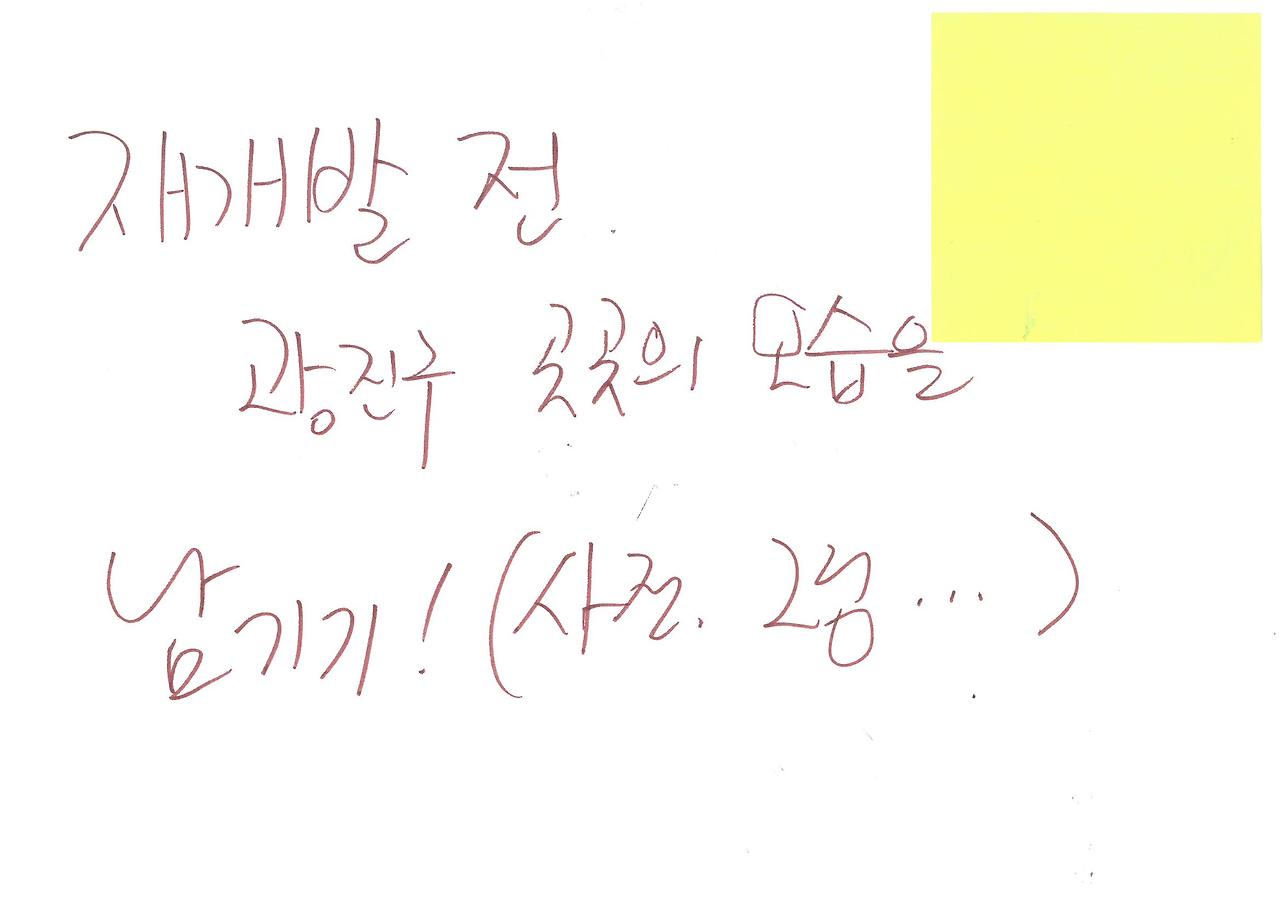 재개발 전
광진구 곳곳의 모습을
남기기! (사진. 그림 ... )